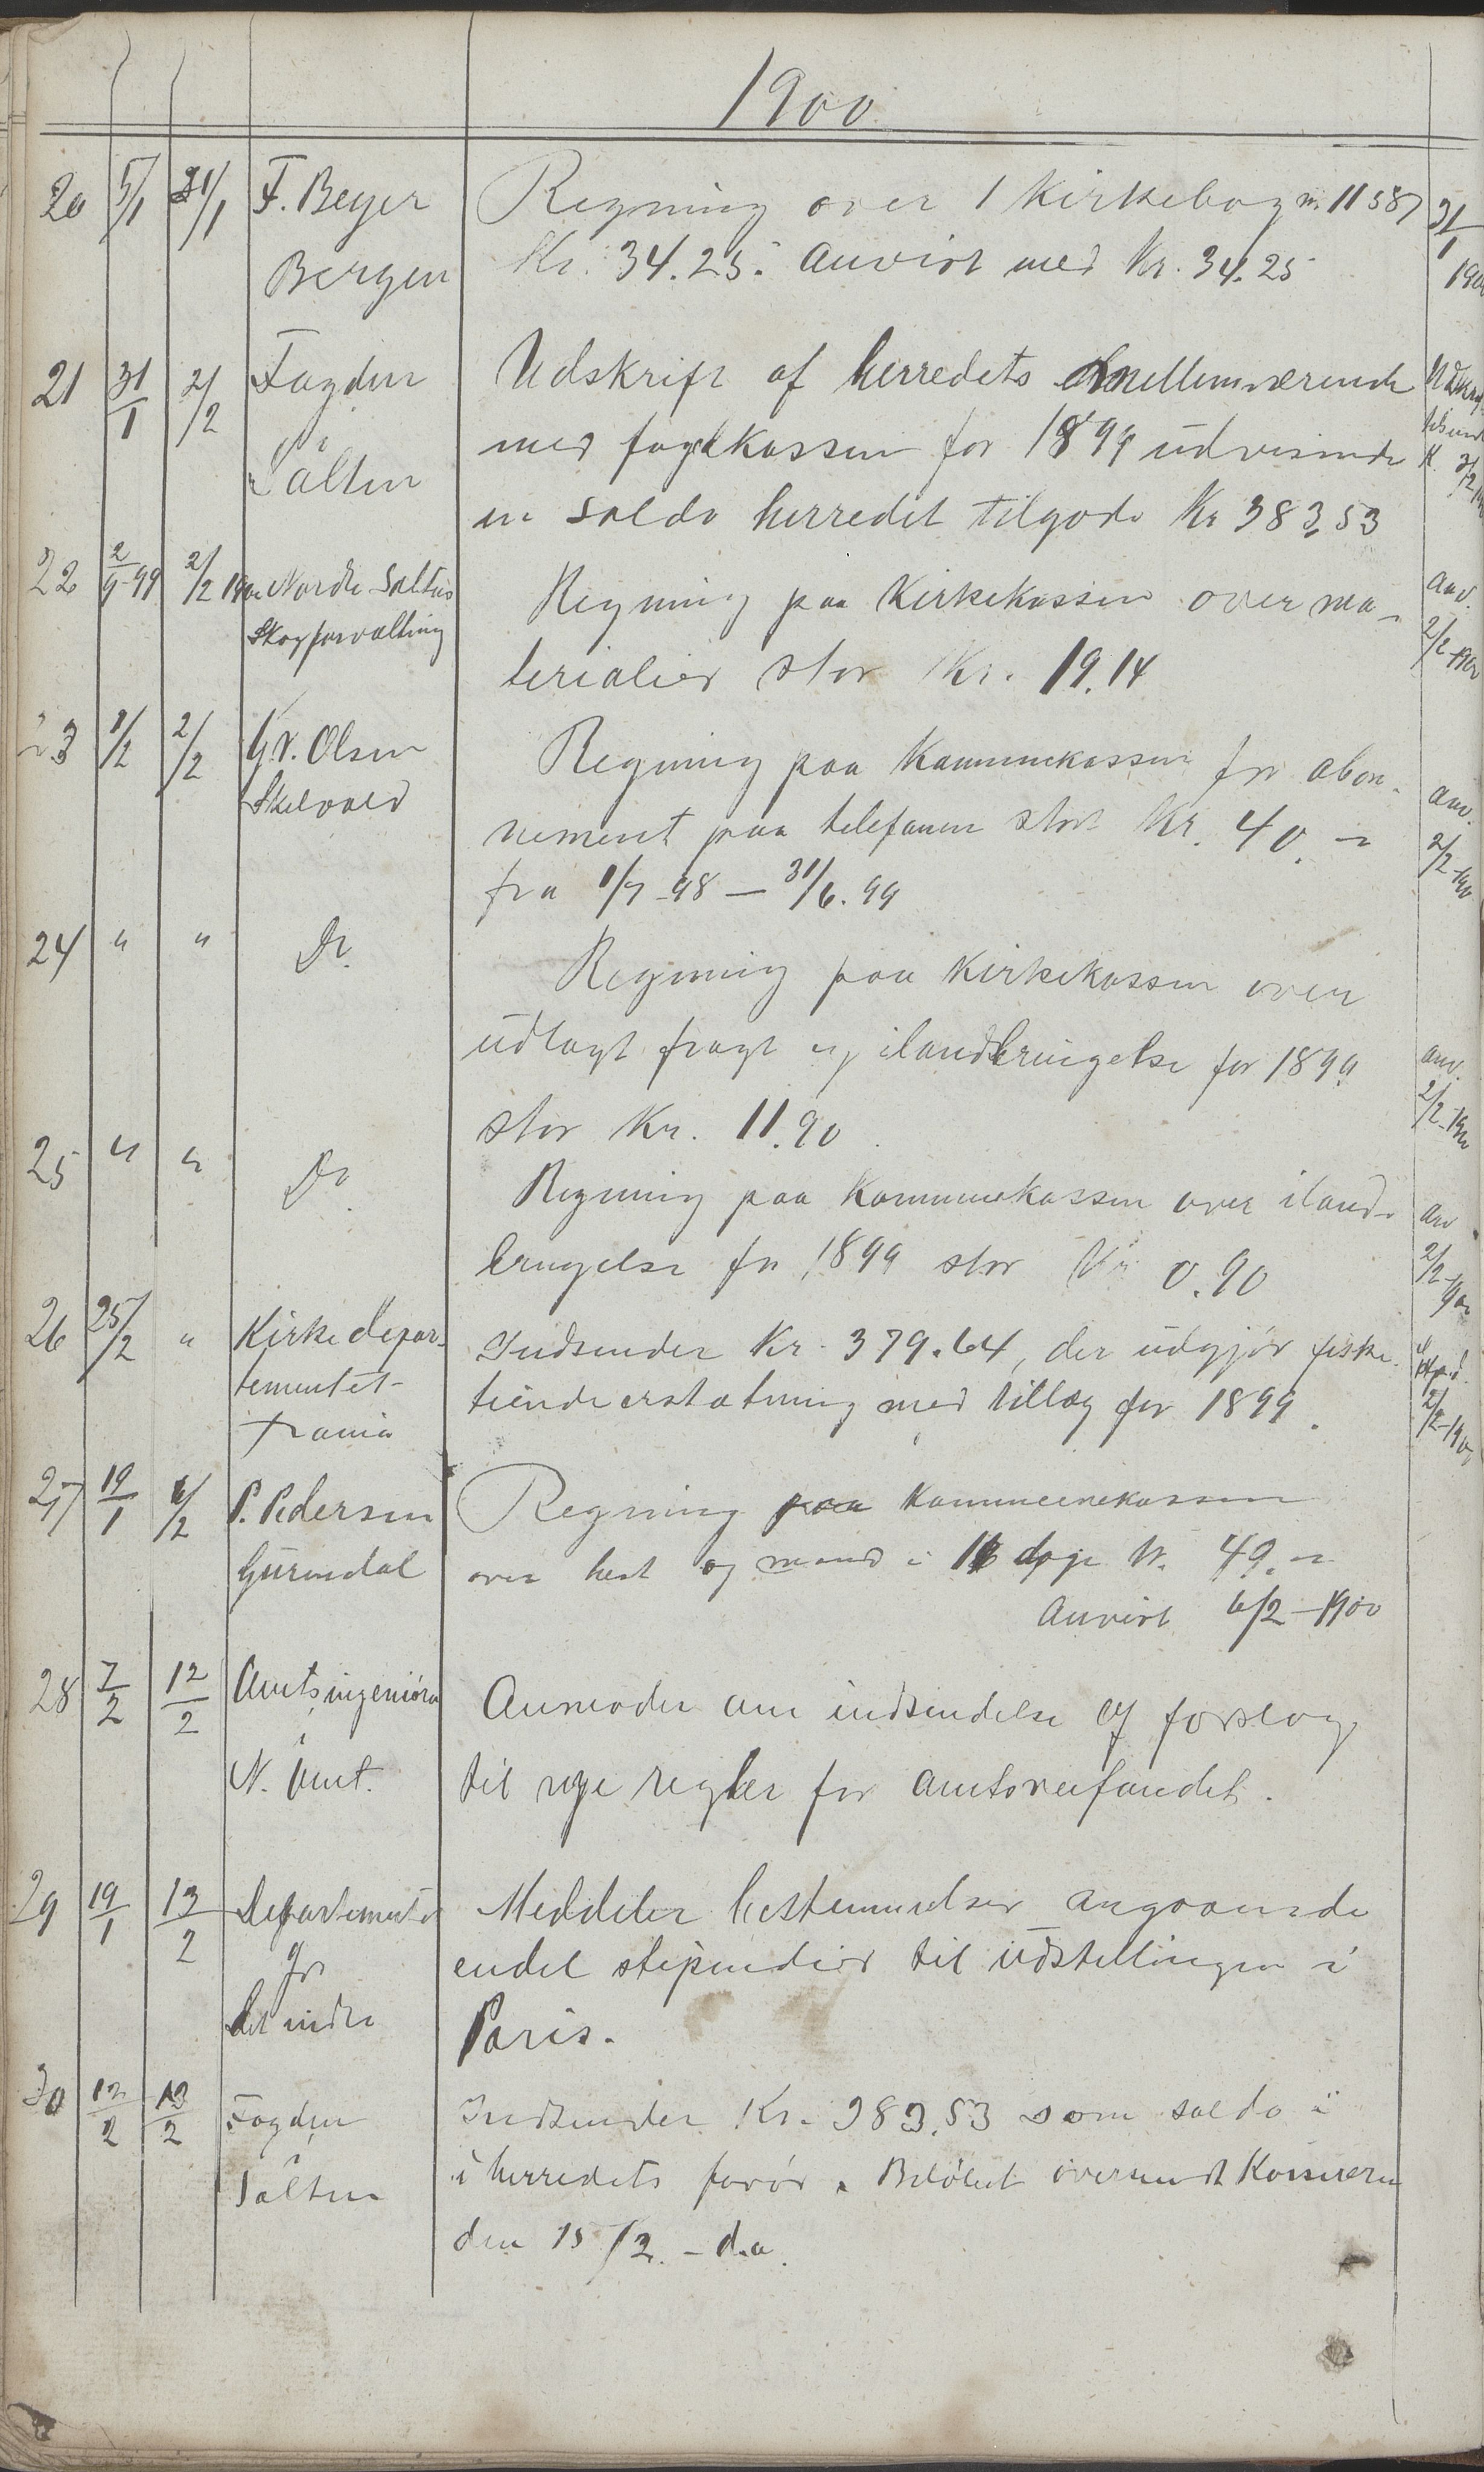 1900
20 5/1 31/1 F. Beyer Regning over 1 Kirkebog m 11587 31/1
Bergen Kr. 34.25. Anvist med Kr. 34.25 190
21 31/1 2/2 Fogden Udskrift af herredets mellemværende
i med fogdkassen for 1899 udvisende
Salten en saldo herredet tilgode Kr 383,53
22 2/9-99 2/2 1900 Nordre Saltens Regning paa Kirkekassen over ma- anv.
Skogforvaltning terialier stor Kr. 19.14 2/2-1900
23 1/2 2/2 Gr. Olsen Regning paa Kommunekassen for abon- anv.
Skelvold nement paa telefonen stor Kr. 40.- 2/2-190
fra 1/7-98 — 31/6.99
24 " " Do. Regning paa Kirkekassen over
udlagt fragt og ilandbringelse for 1899 anv.
stor Kr. 11.90. 2/2-1900
25 " " Do. Regning paa Kommunekassen over iland- anv
bringelse for 1899 stor Kr 0.90 2/2-1900
26 25/2 " Kirkedepar- Indsender Kr. 379.64, der udgjør fiske-
tementet tiendeerstatning med tillæg for 1899. 2/2-1900
Xrania
27 19/1 6/2 P. Pedersen Regning paa Kommunekassen
Gurundal over hest og mand i dage Kr. 49.-
Anvist 6/2-1900
28 7/2 12/2 Amtsingeniøren Anmoder om indsendelse af forslag
i
N. Amt. til nye regler for amtsveifondet.
29 19/1 13/2 Departementet Meddeler bestemmelser angaaende
for endel stipendier til udstillingen i
det indre Paris.
30 12/2 13/2 Fogden Indsender Kr. 383.53 som saldo i
i i herredets favør. Beløbet oversendt Kassereren
Salten den 15/2.-d.a.